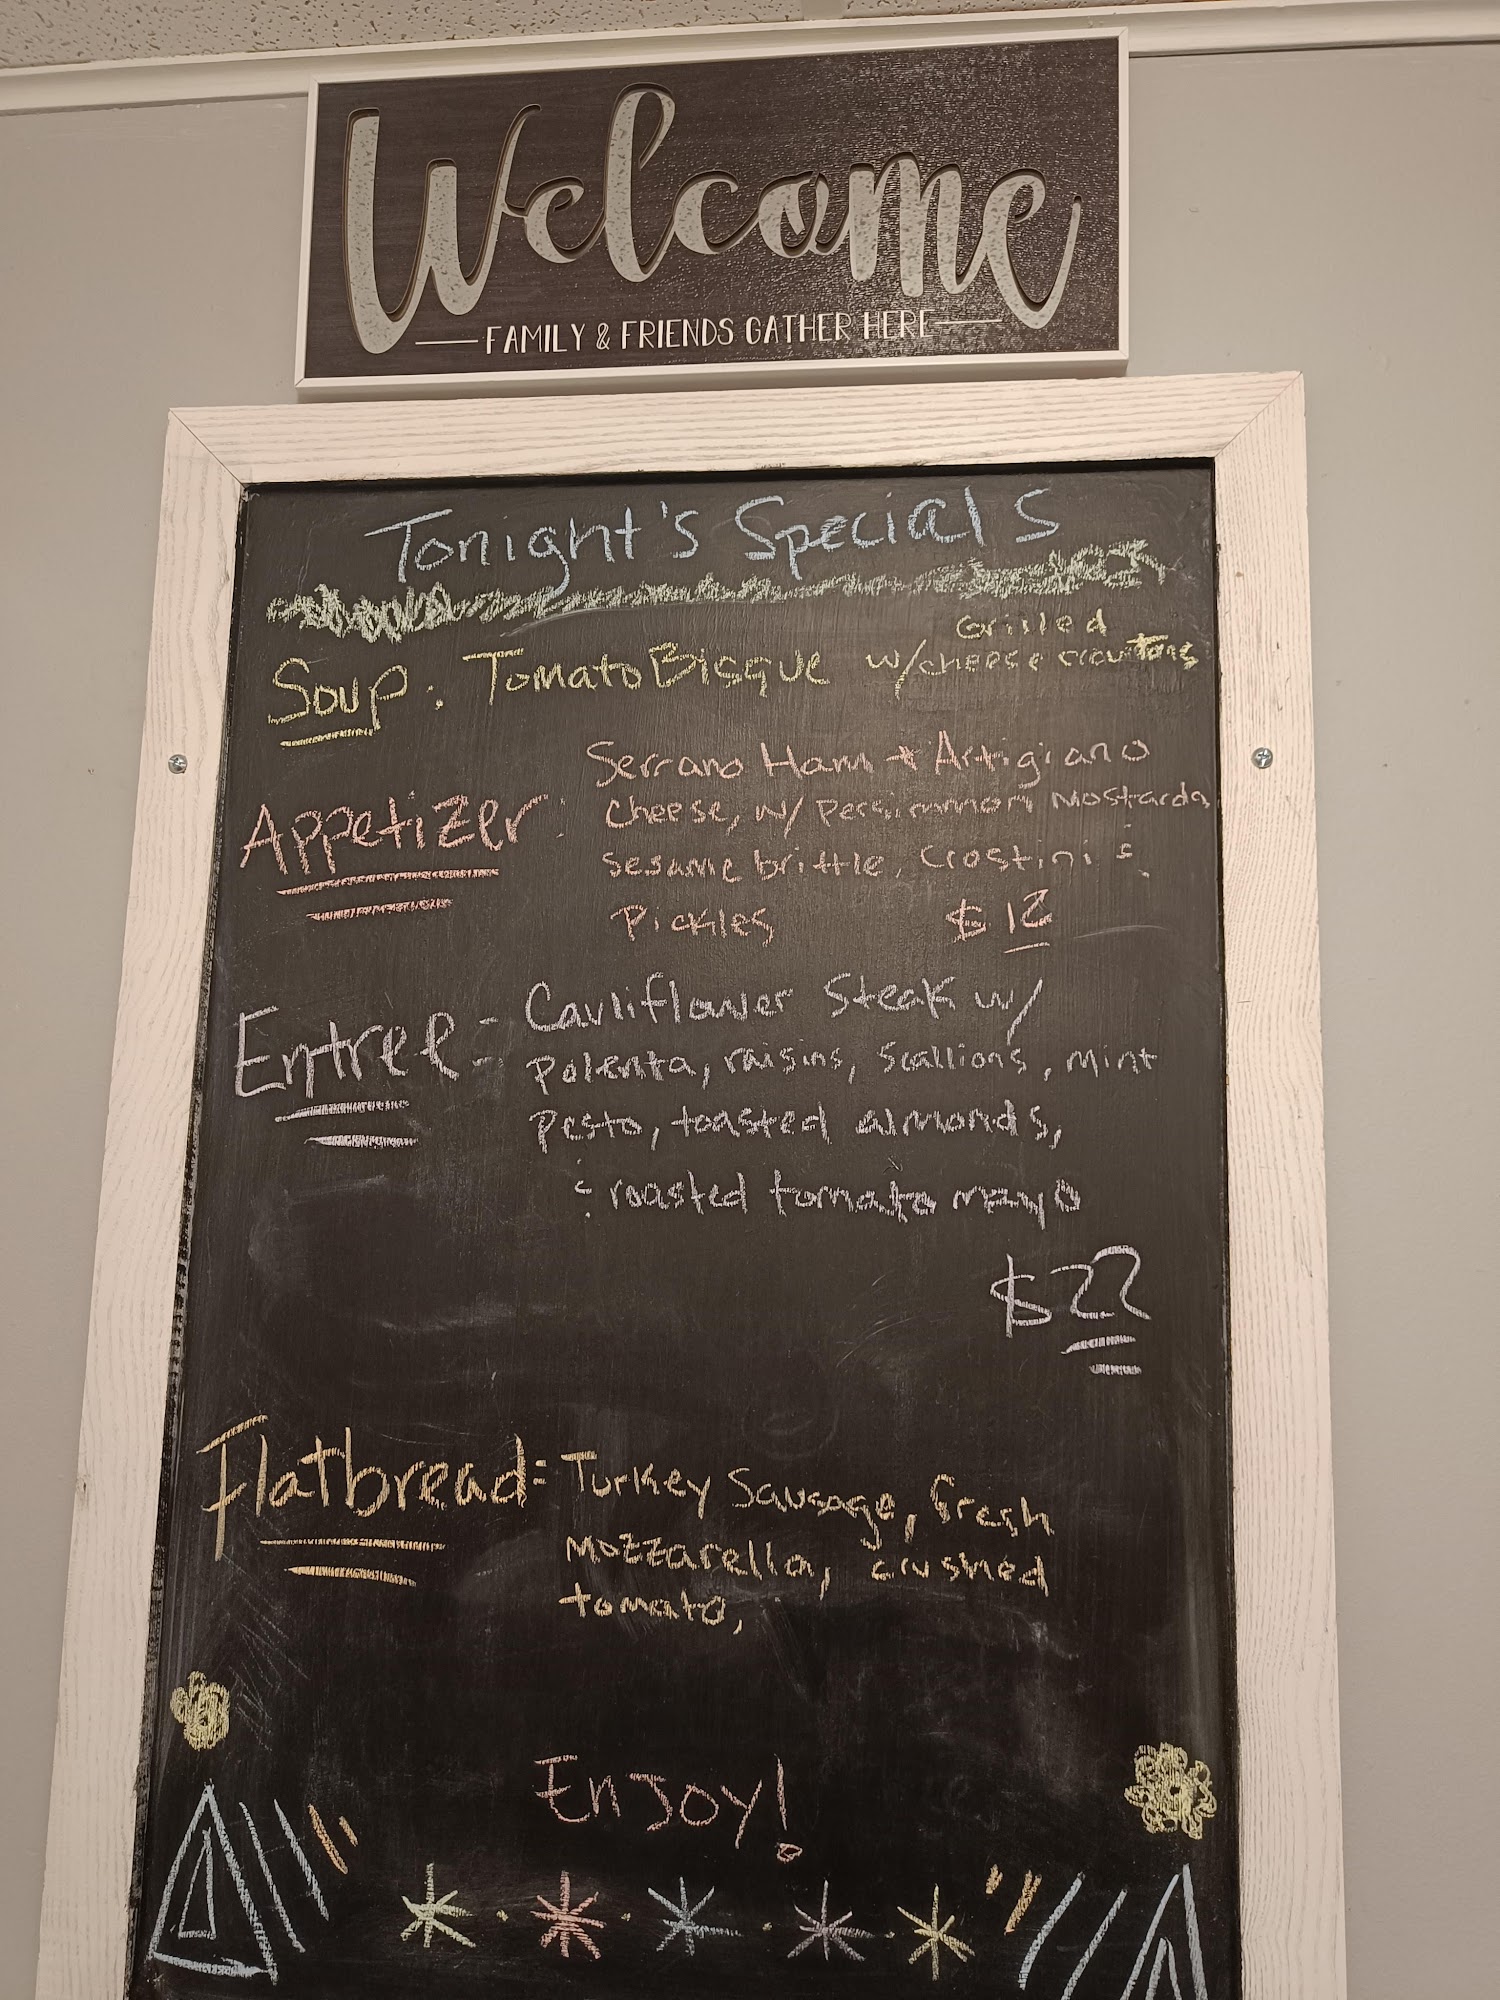 Welcome
FAMILY & FRIENDS GATHER HERE
Tonight's Specials
Soup: Tomato Bisque w/ Grilled cheese croutons
Appetizer: Serrano Ham + Artigiano
cheese, w/ Persimmon Mostarda
sesame brittle, crostini &
Pickles $12
Entree - Cauliflower Steak w/
polenta, raisins, scallions, mint
pesto, toasted almonds,
& roasted tomato mayo
$22
Flatbread: Turkey Sausage, fresh
mozzarella, crushed
tomato,
Enjoy!